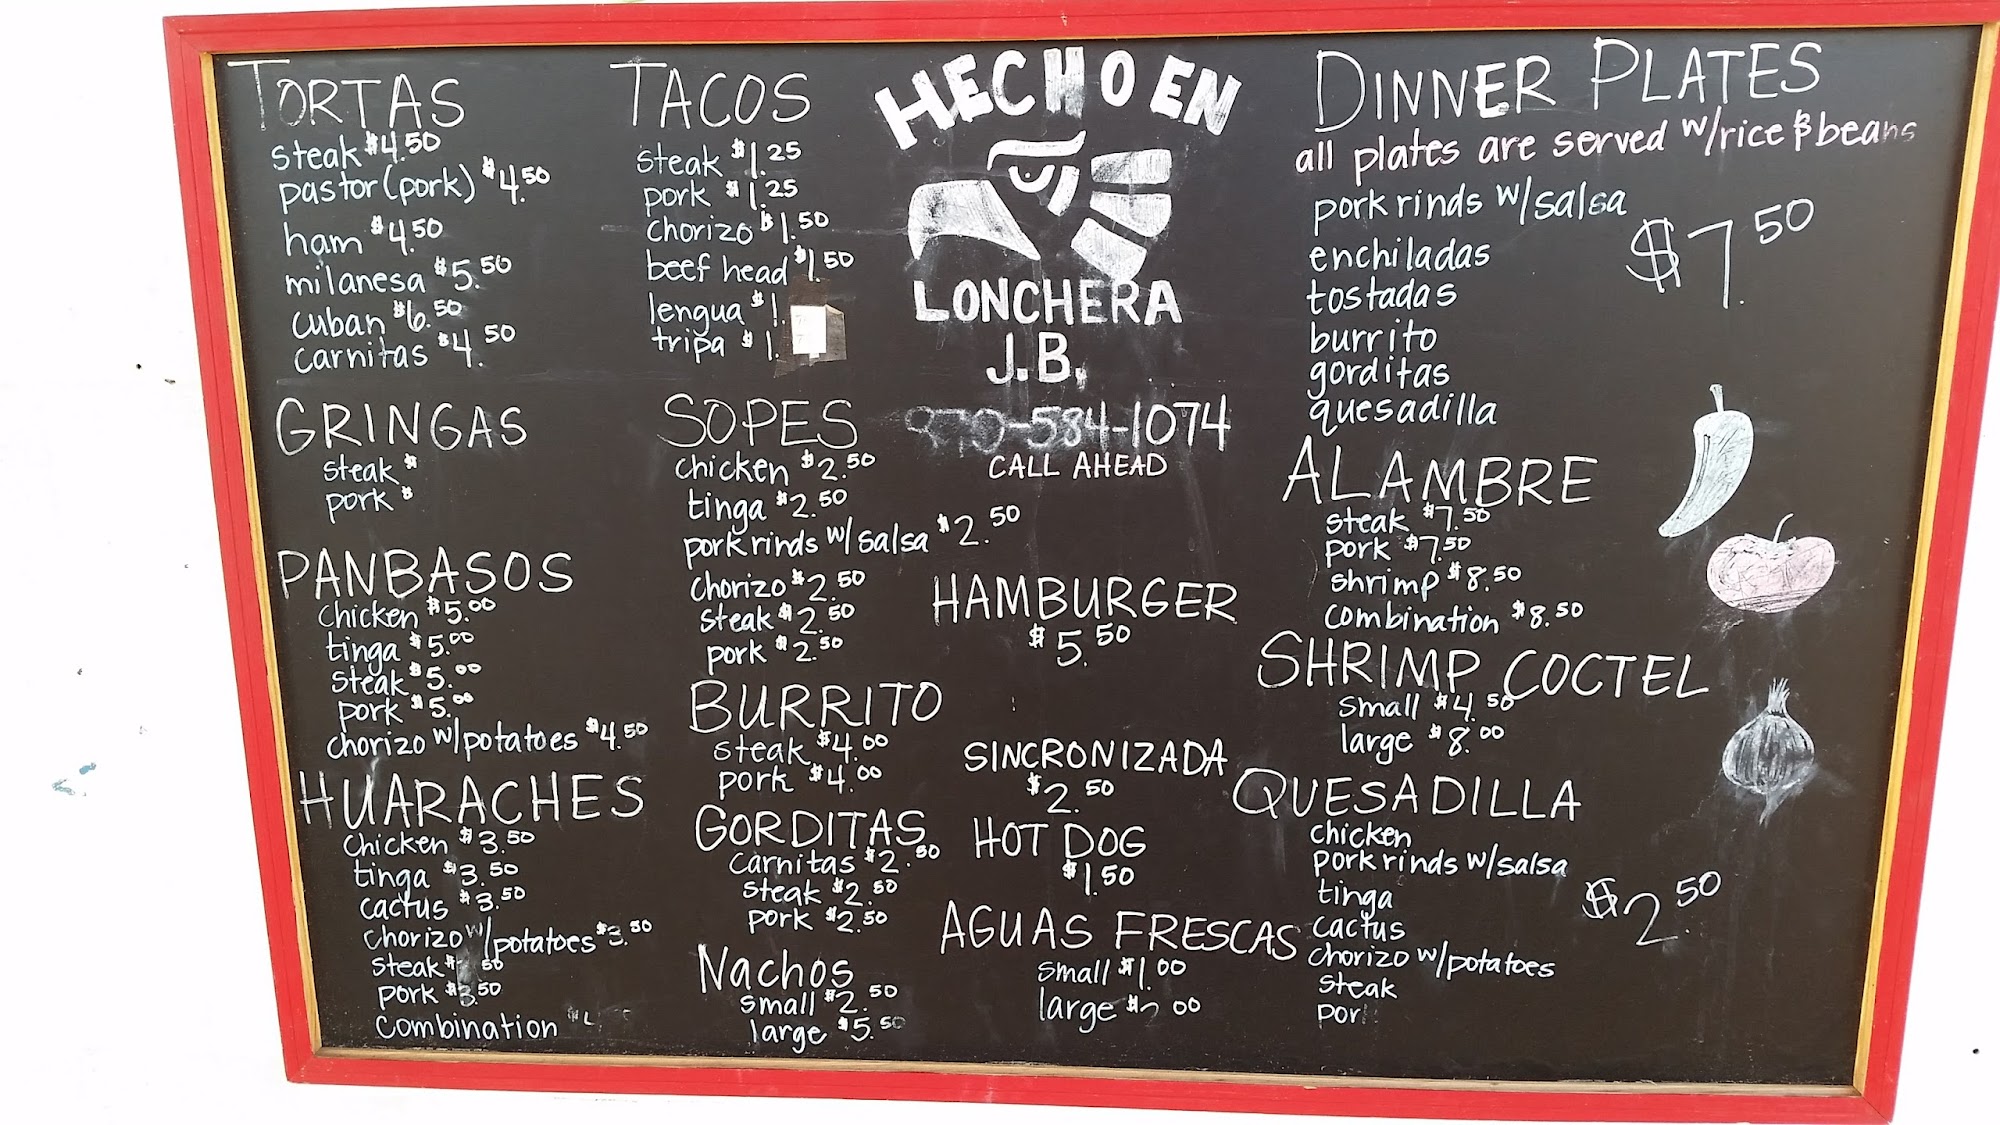 TORTAS
steak $4.50
pastor (pork) $4.50
ham $4.50
milanesa $5.50
cuban $6.50
carnitas $4.50
GRINGAS
steak $
pork $
PANBASOS
chicken $5.00
tinga $5.00
steak $5.00
pork $5.00
chorizo w/potatoes $4.50
HUARACHES
chicken $3.50
tinga $3.50
cactus $3.50
chorizo w/potatoes $3.50
steak $ 50
pork $3.50
combination
TACOS
steak $1.25
pork $1.25
chorizo $1.50
beef head $1.50
lengua $1.
tripa $1.
SOPES
chicken $2.50
tinga $2.50
pork rinds w/salsa $2.50
chorizo $2.50
steak $2.50
pork $2.50
BURRITO
steak $4.00
pork $4.00
GORDITAS
carnitas $2.50
steak $2.50
pork $2.50
NACHOS
small $2.50
large $5.50
HECHO EN
LONCHERA
J.B.
970-584-1074
CALL AHEAD
HAMBURGER
$5.50
SINCRONIZADA
$2.50
HOT DOG
$1.50
AGUAS FRESCAS
small $1.00
large $2.00
DINNER PLATES
all plates are served w/rice & beans
pork rinds w/salsa
$7.50
enchiladas
tostadas
burrito
gorditas
quesadilla
ALAMBRE
steak $7.50
pork $7.50
shrimp $8.50
combination $8.50
SHRIMP COCTEL
small $4.50
large $8.00
QUESADILLA
chicken
pork rinds w/salsa
tinga
$2.50
cactus
chorizo w/potatoes
steak
por